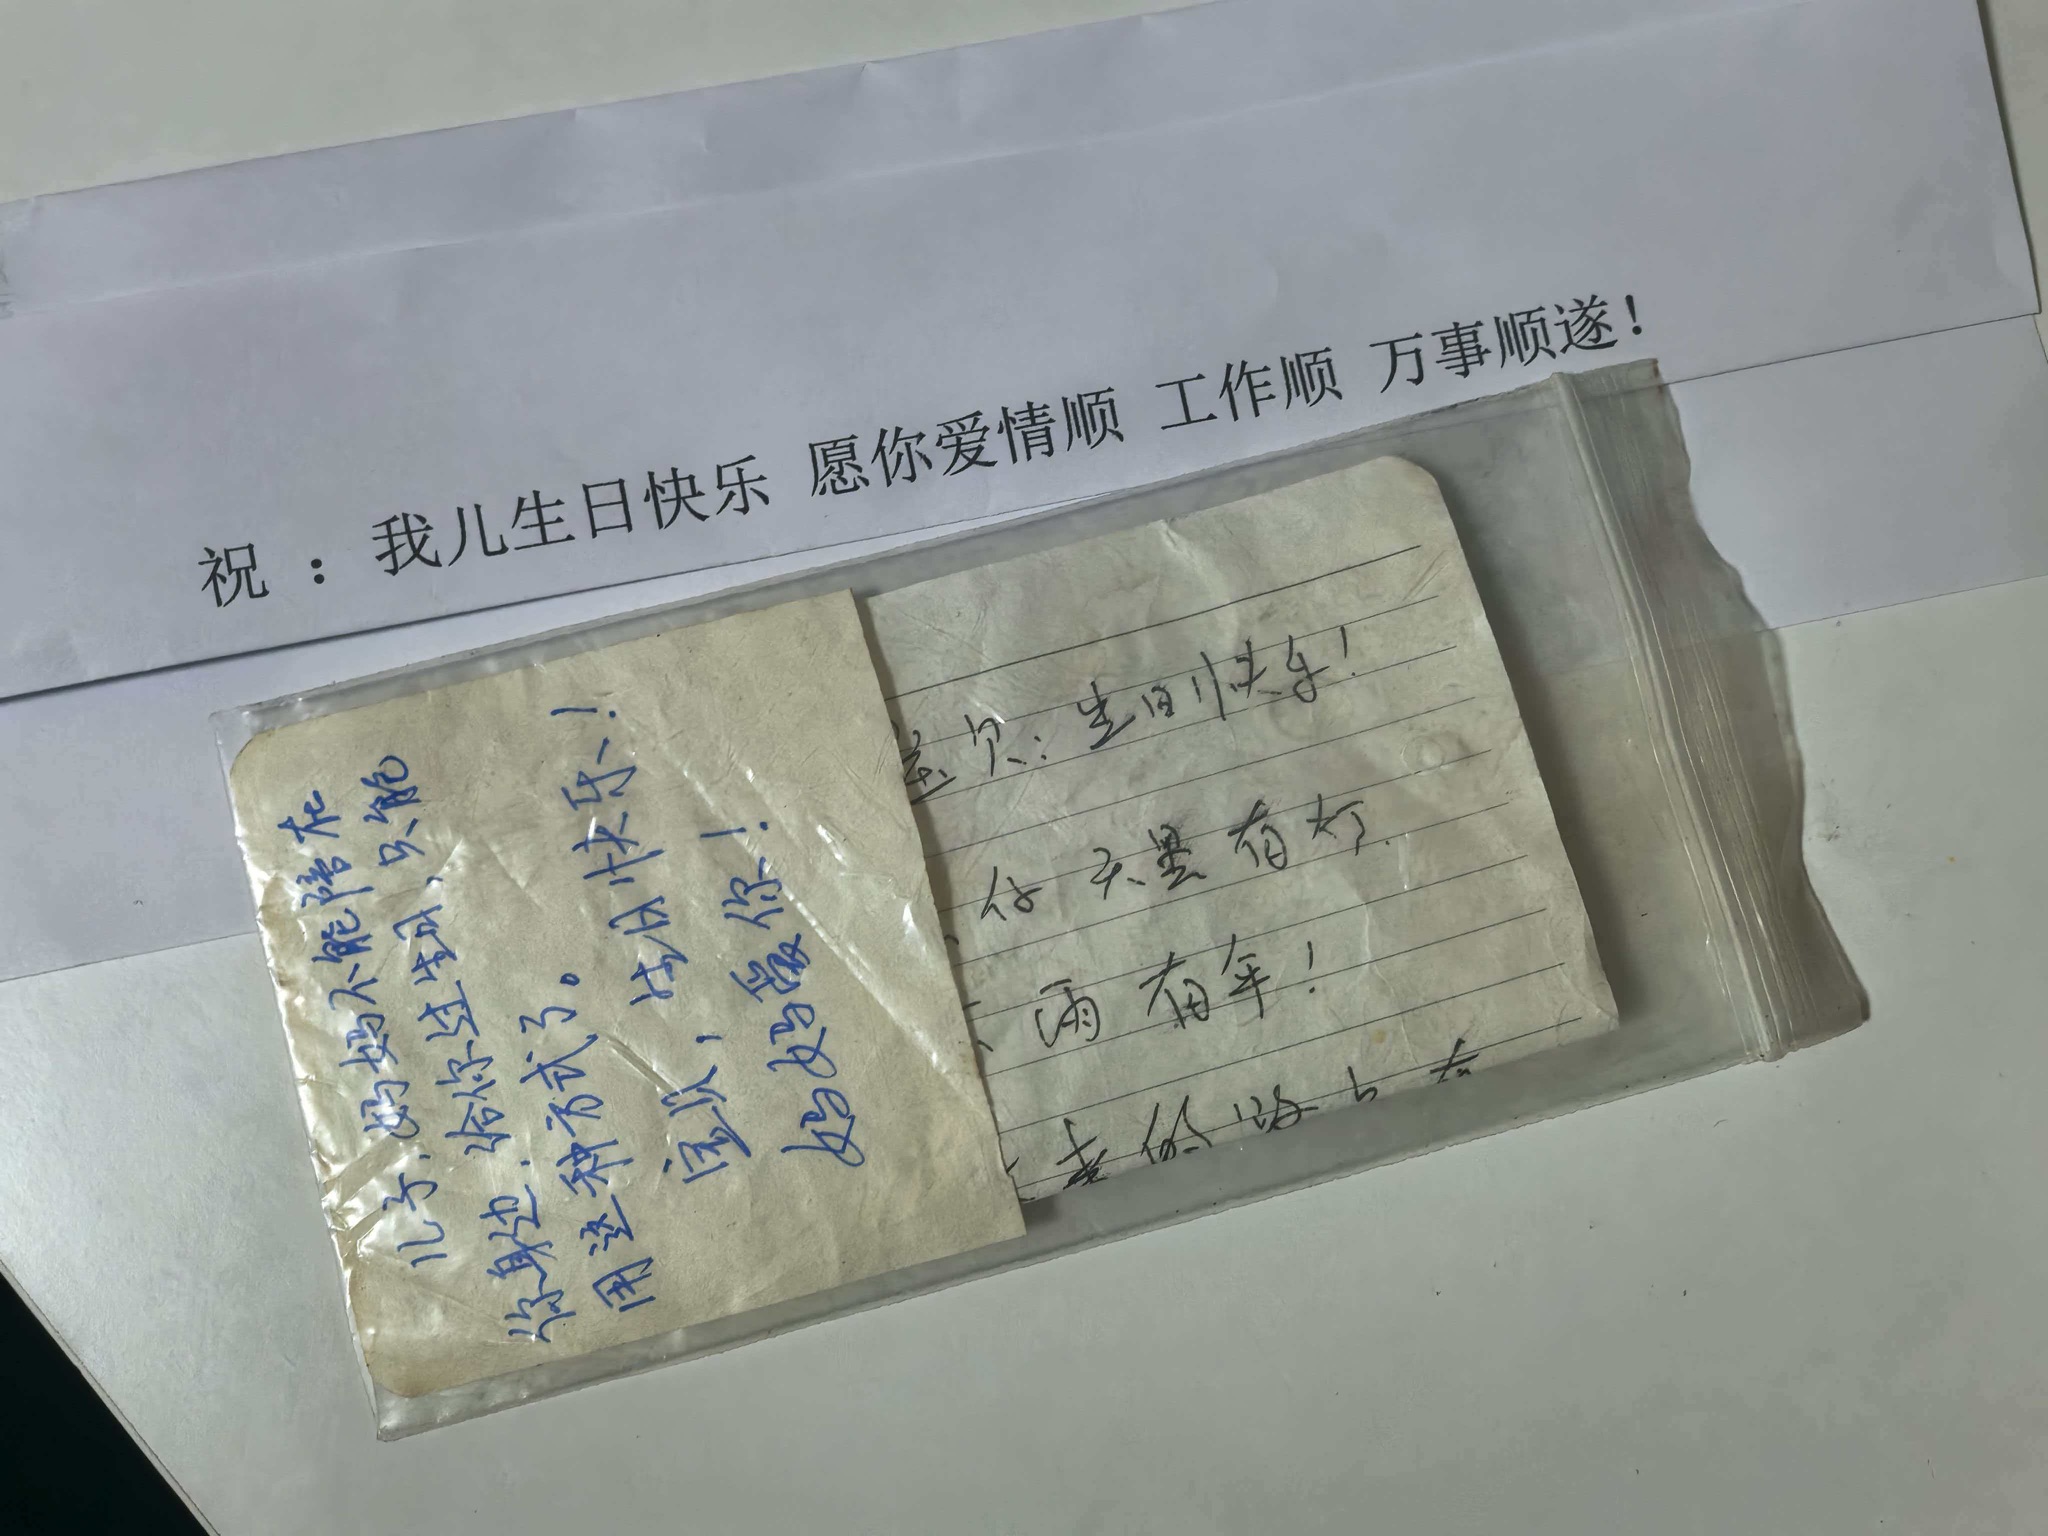 祝 ：我儿生日快乐 愿你爱情顺 工作顺 万事顺遂！
儿子，妈妈不能陪在
你身边，给你过生日，只能
用这种方式了。
生日快乐！
妈妈爱你！
生日快乐！
你天黑有灯，
雨有伞！
的路上有